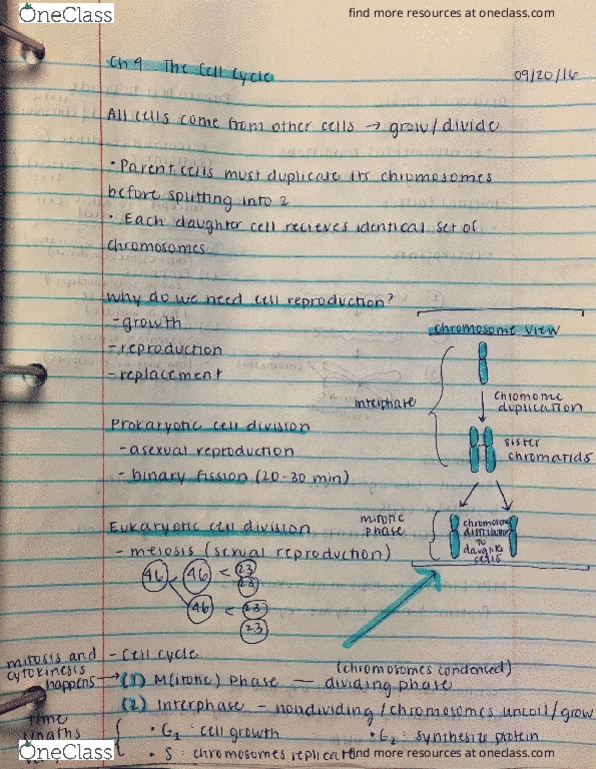 OneClass
find more resources at oneclass.com
Ch 9 The Cell Cycle
09/20/16
All cells come from other cells → grow/divide
• Parent cells must duplicate its chromosomes
before splitting into 2
• Each daughter cell recieves identical set of
chromosomes.
Why do we need cell reproduction?
- growth
- reproduction
- replacement
chromosome view
interphase
chromome
duplication
sister
chromatids
Prokaryotic cell division
- asexual reproduction
- binary fission (20-30 min)
mitotic
phase
chromosome
to
cells
Eukaryotic cell division
- meiosis (sexual reproduction)
46 46 < 23
23
46 < 23
23
mitosis and
cytokinesis
happens →
- cell cycle
(chromosomes condensed)
(1) M(itotic) Phase — dividing phase
(2) Interphase - nondividing/chromosomes uncoil/grow
Time
• G₁ : cell growth
• G₂ : synthesize protein
• S : chromosomes
OneClass
find more resources at oneclass.com